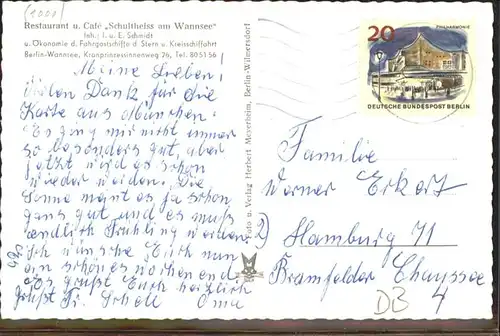 (1000)
Restaurant u. Café „Schultheiss am Wannsee"
Inh.: I. u. E. Schmidt
u. Ökonomie d. Fahrgastschiffe d. Stern u. Kreisschiffahrt
Berlin-Wannsee, Kronprinzessinnenweg 26, Tel. 80 51 56
Meine Lieben!
Vielen Dank für die
Karte aus München.
Es ging mir nicht immer
so besonders gut, aber
jetzt wird es schon
wieder werden. Die
Sonne meint es ja schon
ganz gut und es muß
endlich Frühling werden.
Ich wünsche Euch nun
ein schönes Wochenende
Es grüßt Euch herzlich
Oma
Foto u. Verlag Herbert Meyerheim, Berlin-Wilmersdorf
20
PHILHARMONIE
DEUTSCHE BUNDESPOST BERLIN
Familie
Werner Eckert
2) Hamburg 71
Bramfelder Chaussee
4
DB